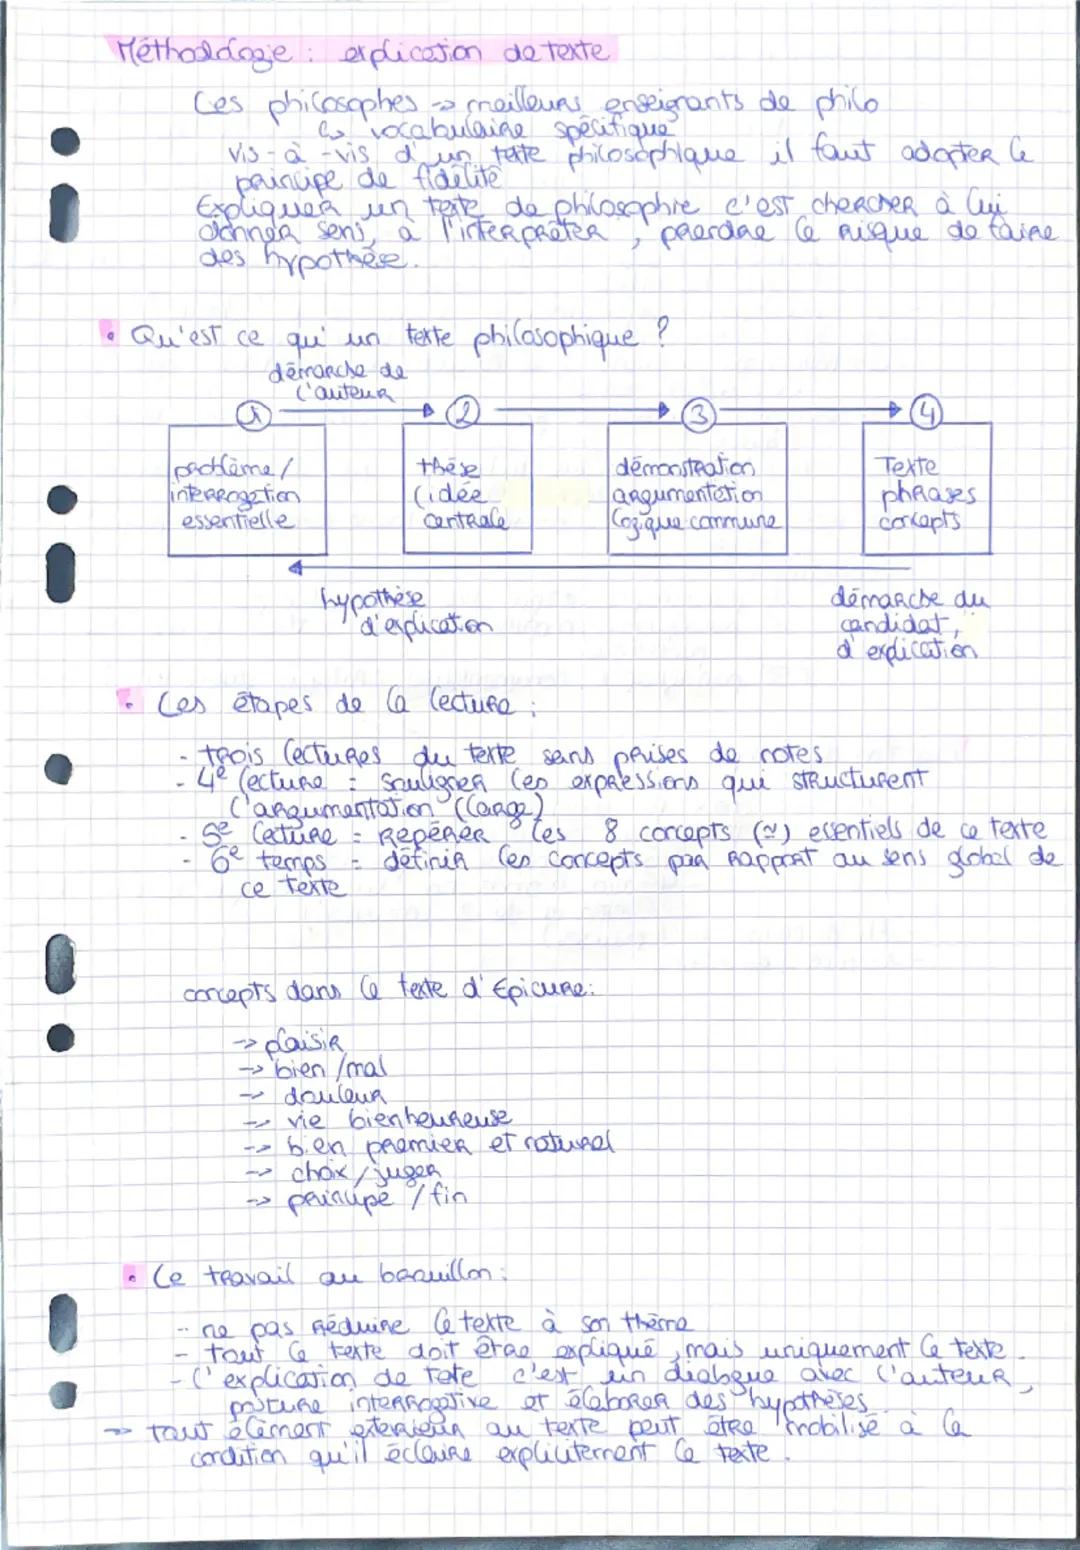 Méthodologie : explication de texte
Les philosophes -> meilleurs enseignants de philo
↳ vocabulaire spécifique
vis-à-vis d'un texte philosophique il faut adopter le
principe de fidélité
Expliquer un texte de philosophie c'est chercher à lui
donner sens, à l'interpréter, prendre le risque de faire
des hypothèse.
• Qu'est ce qu'un texte philosophique ?
démarche de
l'auteur
1 2 3 4
problème / thèse démonstration Texte
interrogation (idée argumentation phrases
essentielle centrale logique commune concepts
hypothèse démarche du
d'explication candidat,
d'explication
• Les étapes de la lecture :
- trois lectures du texte sans prises de notes
- 4e lecture = souligner les expressions qui structurent
l'argumentation (large)
- 5e lecture = Repérer les 8 concepts (≃) essentiels de ce texte
- 6e temps = définir les concepts par rapport au sens global de
ce texte
concepts dans le texte d'Epicure:
-> plaisir
-> bien /mal
-> douleur
-> vie bienheureuse
-> bien premier et naturel
-> choix / juger
-> principe / fin
• Le travail au brouillon :
- ne pas réduire le texte à son thème
- tout le texte doit être expliqué, mais uniquement le texte.
- l'explication de texte c'est un dialogue avec l'auteur,
posture interrogative et élaborer des hypothèses
-> tout élément extérieur au texte peut être mobilisé à la
condition qu'il éclaire explicitement le texte.